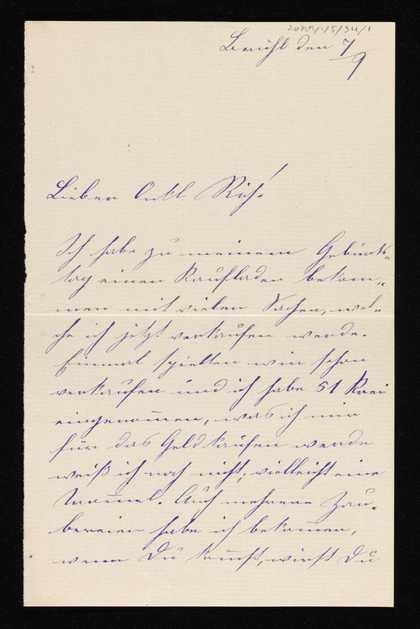 den 7/9
Lieber Onkel Rich!
Ich habe zu meinem Geburts-
tag einen Kaufladen bekom-
men mit vielen Sachen, wel-
che ich jetzt verkaufen werde.
Einmal spielten wir schon
verkaufen und ich habe 51 Krei
eingenommen, was ich mir
für das Geld kaufen werde
weiß ich noch nicht, vielleicht eine
Trommel. Auch mehrere Zau-
bereien habe ich bekommen,
wenn Du kommst, wirst Du